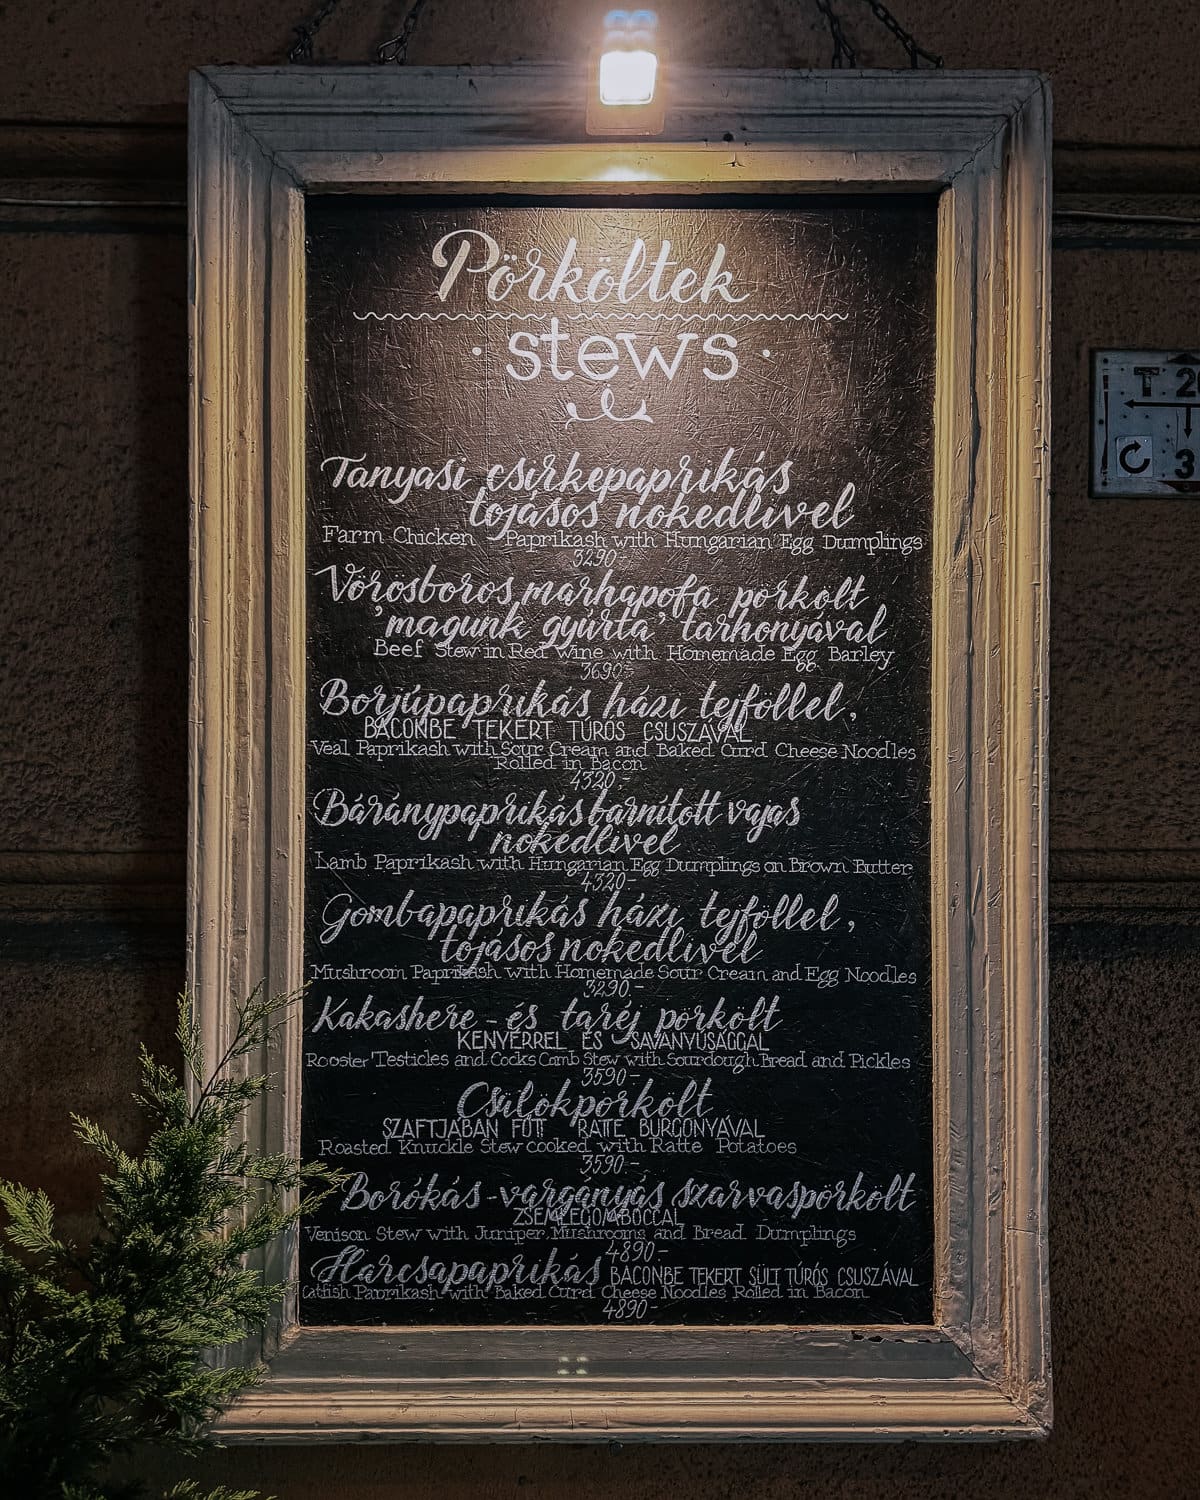 Pörköltek
stews
Tanyasi csirkepaprikás
tojásos nokedlivel
Farm Chicken Paprikash with Hungarian Egg Dumplings
3290-
Vörösboros marhapofa pörkölt
'magunk gyúrta' tarhonyával
Beef Stew in Red Wine with Homemade Egg Barley
3690-
Borjúpaprikás házi tejföllel,
BACONBE TEKERT TÚRÓS CSUSZÁVAL
Veal Paprikash with Sour Cream and Baked Curd Cheese Noodles
Rolled in Bacon
4320,-
Báránypaprikás barnított vajas
nokedlivel
Lamb Paprikash with Hungarian Egg Dumplings on Brown Butter
4320-
Gombapaprikás házi tejföllel,
tojásos nokedlivel
Mushroom Paprikash with Homemade Sour Cream and Egg Noodles
3290-
Kakashere- és taréj pörkölt
KENYÉRREL ÉS SAVANYÚSÁGGAL
Rooster Testicles and Cocks Comb Stew with Sourdough Bread and Pickles
3590-
Csülökpörkölt
SZAFTJÁBAN FŐTT RATTE BURGONYÁVAL
Roasted Knuckle Stew cooked with Ratte Potatoes
3590-
Borókás-vargányás szarvaspörkölt
ZSEMLEGOMBÓCCAL
Venison Stew with Juniper, Mushrooms and Bread Dumplings
4890-
Harcsapaprikás BACONBE TEKERT SÜLT TÚRÓS CSUSZÁVAL
Catfish Paprikash with Baked Curd Cheese Noodles Rolled in Bacon
4890-
T 20
3